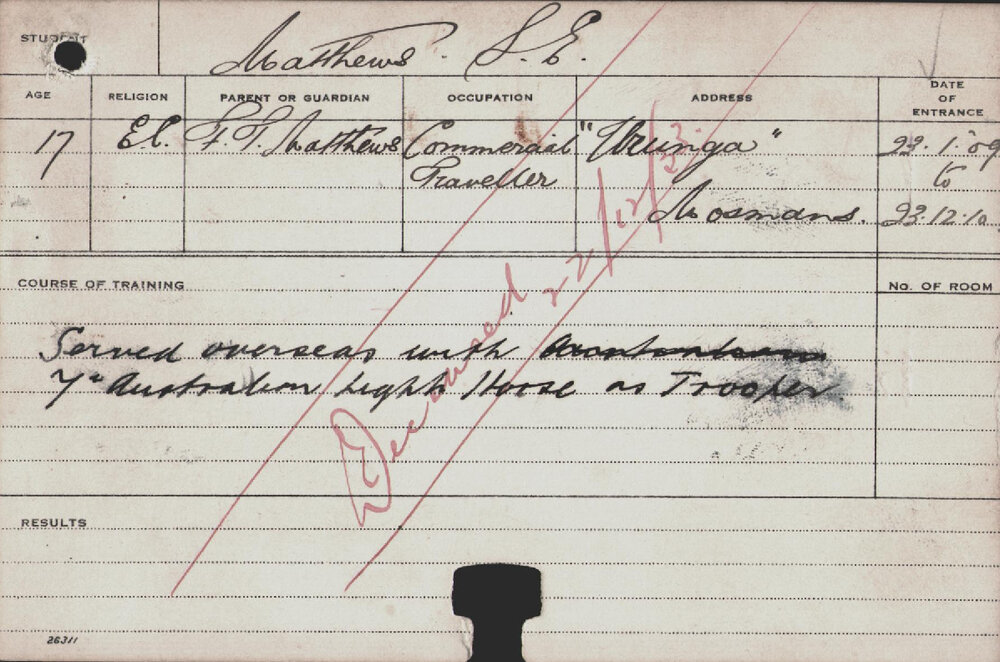 STUDENT
Matthews. S. E.
AGE RELIGION PARENT OR GUARDIAN OCCUPATION ADDRESS DATE OF ENTRANCE
17 E.C. F. F. Matthews Commercial "Urunga" 22.1.09
Traveller to
Mosmans. 23.12.10
COURSE OF TRAINING No. OF ROOM
Served overseas with
7th Australian Light Horse as Trooper.
Deceased 22/12/53.
RESULTS
26311